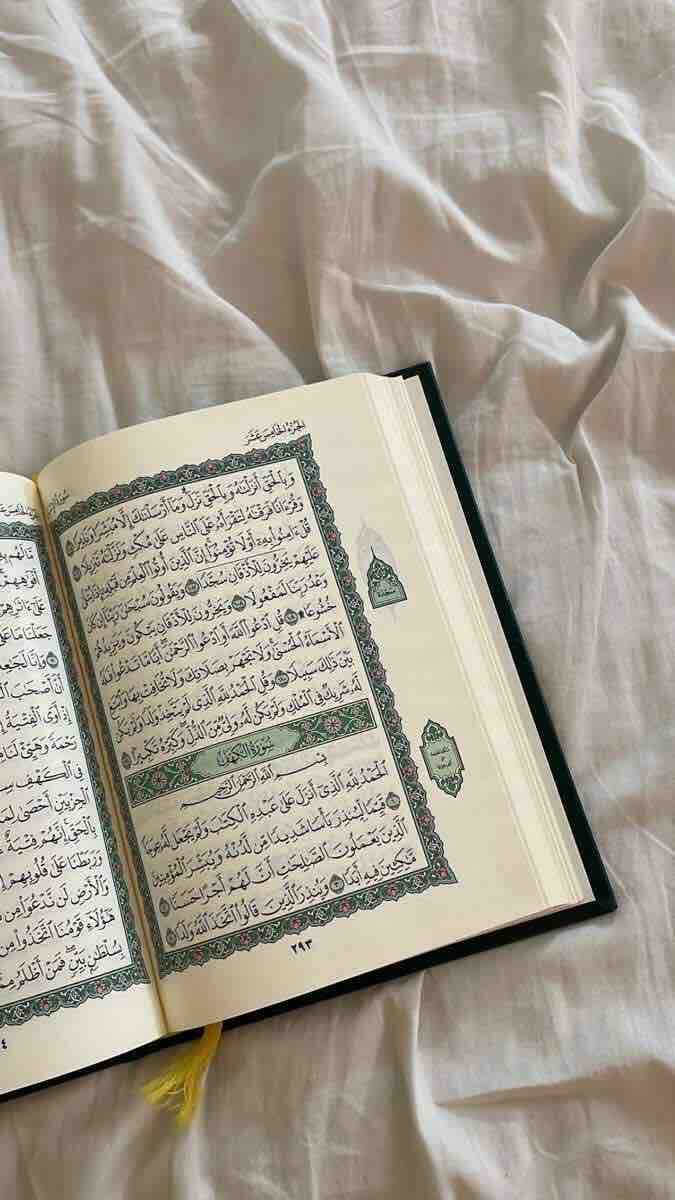 الجزء الخامس عشر
وَبِالْحَقِّ أَنزَلْنَٰهُ وَبِالْحَقِّ نَزَلَ ۗ وَمَآ أَرْسَلْنَٰكَ إِلَّا مُبَشِّرًا وَنَذِيرًا ١٠٥
وَقُرْءَانًا فَرَقْنَٰهُ لِتَقْرَأَهُۥ عَلَى النَّاسِ عَلَىٰ مُكْثٍ وَنَزَّلْنَٰهُ تَنزِيلًا ١٠٦
قُلْ ءَامِنُوا بِهِۦٓ أَوْ لَا تُؤْمِنُوٓا ۚ إِنَّ الَّذِينَ أُوتُوا الْعِلْمَ مِن قَبْلِهِۦٓ إِذَا يُتْلَىٰ
عَلَيْهِمْ يَخِرُّونَ لِلْأَذْقَانِ سُجَّدًا ١٠٧ وَيَقُولُونَ سُبْحَٰنَ رَبِّنَآ إِن كَانَ
وَعْدُ رَبِّنَا لَمَفْعُولًا ١٠٨ وَيَخِرُّونَ لِلْأَذْقَانِ يَبْكُونَ وَيَزِيدُهُمْ
خُشُوعًا ۩ ١٠٩ قُلِ ادْعُوا اللَّهَ أَوِ ادْعُوا الرَّحْمَٰنَ ۖ أَيًّا مَّا تَدْعُوا فَلَهُ
الْأَسْمَآءُ الْحُسْنَىٰ ۚ وَلَا تَجْهَرْ بِصَلَاتِكَ وَلَا تُخَافِتْ بِهَا وَابْتَغِ
بَيْنَ ذَٰلِكَ سَبِيلًا ١١٠ وَقُلِ الْحَمْدُ لِلَّهِ الَّذِي لَمْ يَتَّخِذْ وَلَدًا وَلَمْ يَكُن
لَّهُۥ شَرِيكٌ فِي الْمُلْكِ وَلَمْ يَكُن لَّهُۥ وَلِيٌّ مِّنَ الذُّلِّ ۖ وَكَبِّرْهُ تَكْبِيرًا ١١١
سُورَةُ الْكَهْفِ
بِسْمِ اللَّهِ الرَّحْمَٰنِ الرَّحِيمِ
الْحَمْدُ لِلَّهِ الَّذِيٓ أَنزَلَ عَلَىٰ عَبْدِهِ الْكِتَٰبَ وَلَمْ يَجْعَل لَّهُۥ عِوَجَا ۜ ١
قَيِّمًا لِّيُنذِرَ بَأْسًا شَدِيدًا مِّن لَّدُنْهُ وَيُبَشِّرَ الْمُؤْمِنِينَ
الَّذِينَ يَعْمَلُونَ الصَّٰلِحَٰتِ أَنَّ لَهُمْ أَجْرًا حَسَنًا ٢
مَّٰكِثِينَ فِيهِ أَبَدًا ٣ وَيُنذِرَ الَّذِينَ قَالُوا اتَّخَذَ اللَّهُ وَلَدًا ٤
سجدة
٢٩٣
مَّا لَهُم بِهِ
أَفْوَٰهِهِمْ
عَلَىٰٓ ءَاثَٰرِهِمْ
جَعَلْنَا مَا عَلَى
وَإِنَّا لَجَٰعِلُ
أَنَّ أَصْحَٰبَ
إِذْ أَوَى الْفِتْيَةُ
رَحْمَةً وَهَيِّئْ لَنَا
فِي الْكَهْفِ
الْحِزْبَيْنِ أَحْصَىٰ لِمَا
بِالْحَقِّ ۚ إِنَّهُمْ فِتْيَةٌ
وَرَبَطْنَا عَلَىٰ قُلُوبِهِمْ
وَالْأَرْضِ لَن نَّدْعُوَا مِن
هَٰٓؤُلَآءِ قَوْمُنَا اتَّخَذُوا مِن
بِسُلْطَٰنٍ بَيِّنٍ ۖ فَمَنْ أَظْلَمُ